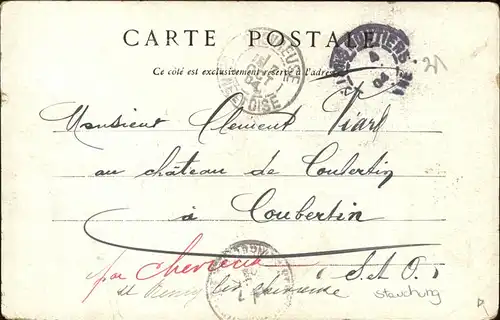 CARTE POSTALE
Ce côté est exclusivement réservé à l'adresse
21
Monsieur Clement Viard
au château de Coubertin
à Coubertin
par Chevreuse S. et O.
st Remy les chevreuse
Stauchung